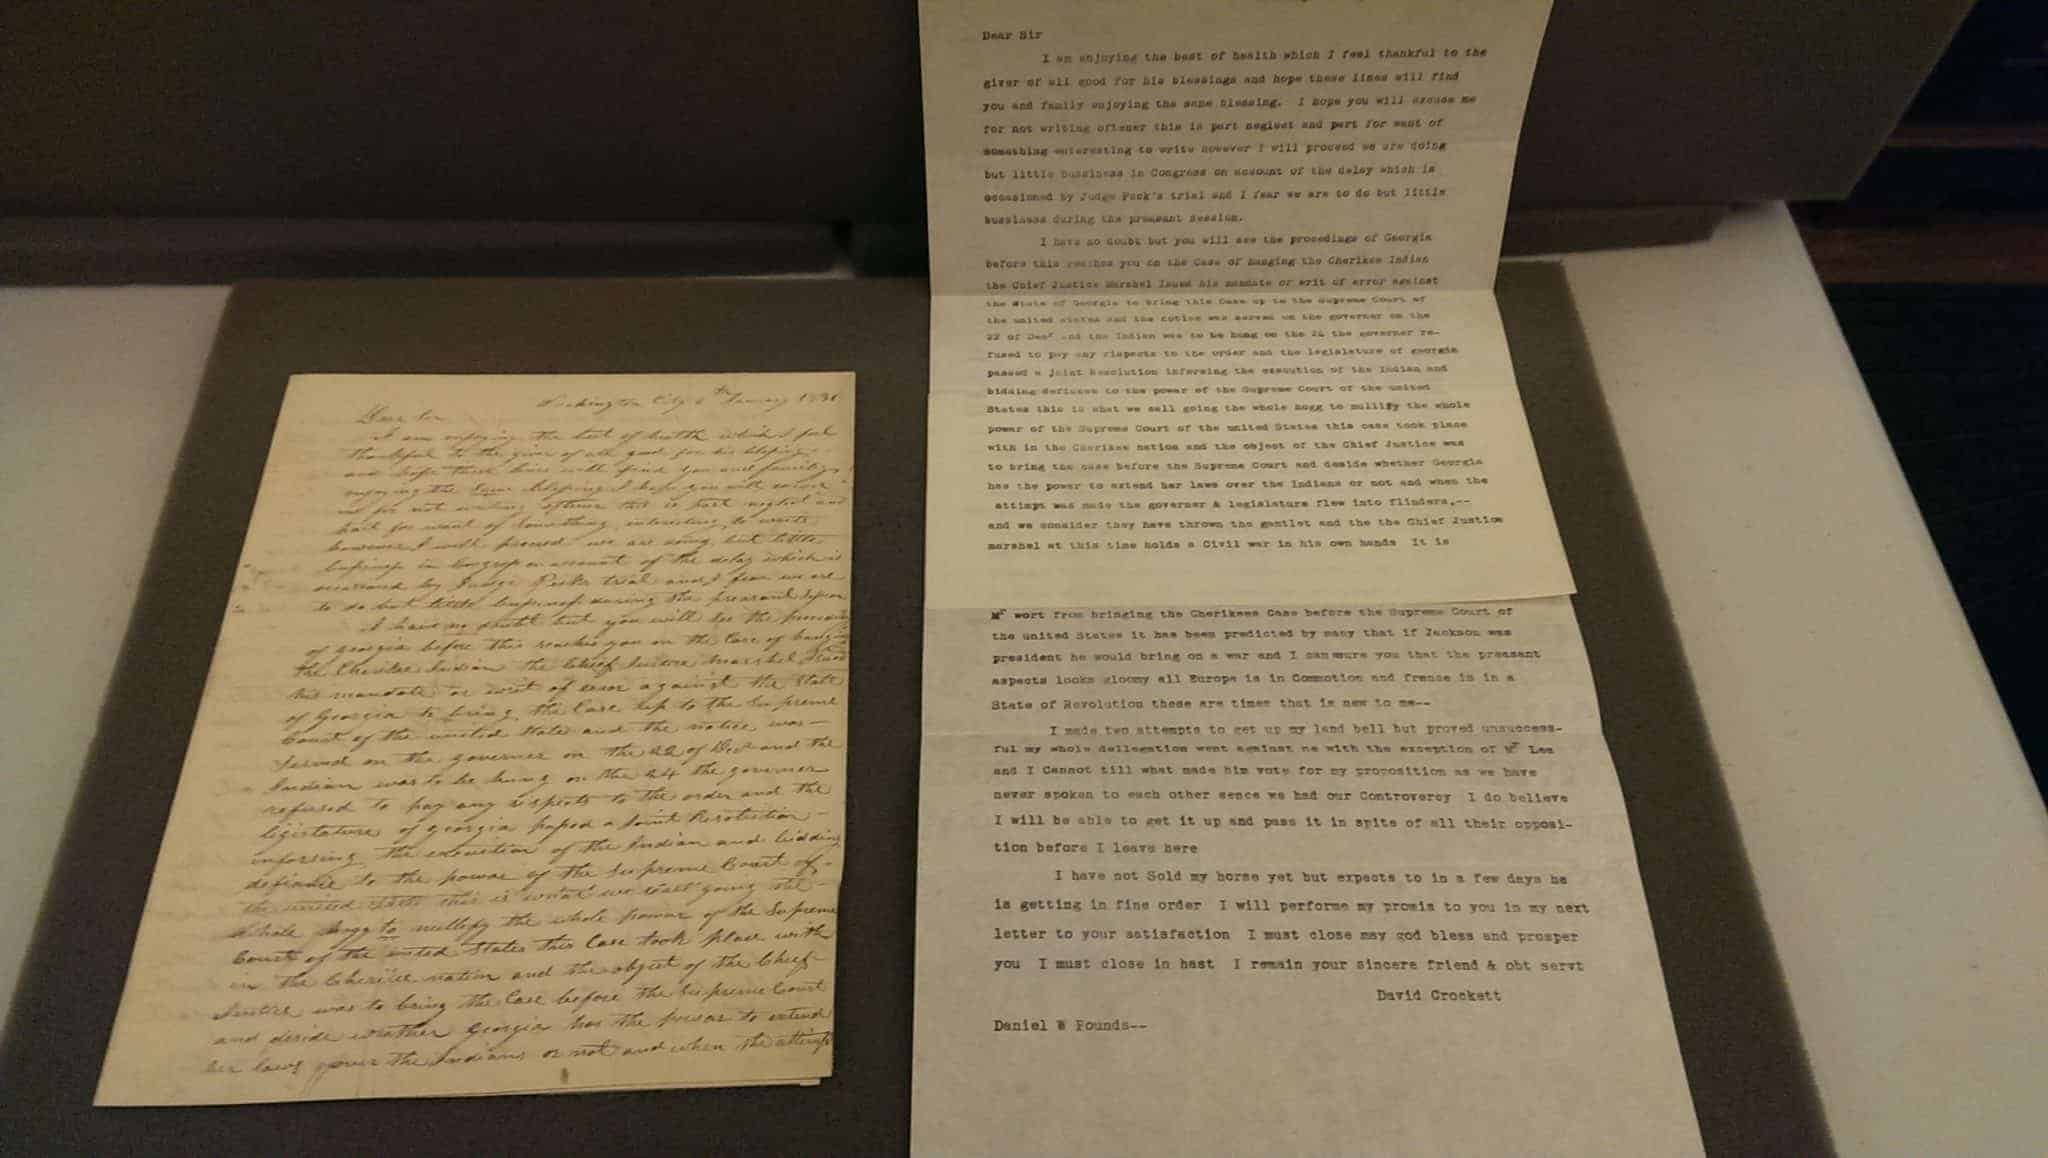 Washington City 6th January 1831
Dear Sir
I am enjoying the best of health which I feel
thankful to the giver of all good for his blessings
and hope these lines will find you and family
enjoying the same blessing I hope you will excuse
me for not writing oftener this is part neglect and
part for want of something interesting to write
however I will proceed we are doing but little
bussiness in Congress on account of the delay which is
occasiond by Judge Pecks trial and I fear we are
to do but little bussiness during the preasant Session
I have no doubt but you will see the
of georgia before this reaches you on the Case of hanging
the Cherikee Indian the Chief Justice Marshel Isued
his mandate or writ of error against the State
of Georgia to bring the Case up to the Supreme
Court of the united States and the notice was
served on the governor on the 22 of Decr and the
Indian was to be hung on the 24 the governor
refused to pay any rispects to the order and the
legislature of georgia passed a Joint Resolution
inforsing the execution of the Indian and bidding
defiance to the power of the Supreme Court of
the united States this is what we call going the
whole hogg to nullify the whole power of the Supreme
Court of the united States this Case took place with
in the Cherikee nation and the object of the Chief
Justice was to bring the Case before the Supreme Court
and deside whether Georgia has the power to extend
her laws over the Indians or not and when the attempt
Dear Sir
I am enjoying the best of health which I feel thankful to the
giver of all good for his blessings and hope these lines will find
you and family enjoying the same blessing. I hope you will excuse me
for not writing oftener this is part neglect and part for want of
something enteresting to write however I will proceed we are doing
but little bussiness in Congress on account of the delay which is
occasioned by Judge Peck's trial and I fear we are to do but little
bussiness during the preasant session.
I have no doubt but you will see the procedings of Georgia
before this reaches you on the Case of hanging the Cherikee Indian
the Chief Justice Marshel Isued his mandate or writ of error against
the State of Georgia to bring this Case up to the Supreme Court of
the united states and the notice was served on the governor on the
22 of Decr and the Indian was to be hung on the 24 the governor re-
fused to pay any rispects to the order and the legislature of georgia
passed a Joint Resolution inforsing the execution of the Indian and
bidding defiance to the power of the Supreme Court of the united
States this is what we call going the whole hogg to nullify the whole
power of the Supreme Court of the united States this case took place
with in the Cherikee nation and the object of the Chief Justice was
to bring the case before the Supreme Court and deside whether Georgia
has the power to extend her laws over the Indians or not and when the
attimpt was made the governor & legislature flew into flinders,--
and we consider they have thrown the gantlet and the the Chief Justice
marshel at this time holds a Civil war in his own hands It is
Mr wort from bringing the Cherikees Case before the Supreme Court of
the united States it has been predicted by many that if Jackson was
president he would bring on a war and I can asure you that the preasant
aspects looks gloomy all Europe is in Commotion and france is in a
State of Revolution these are times that is new to me--
I made two attempts to get up my land bell but proved unsuccess-
ful my whole dellegation went against me with the exception of Mr Lea
and I Cannot till what made him vote for my proposition as we have
never spoken to each other sence we had our Controvercy I do believe
I will be able to get it up and pass it in spite of all their opposi-
tion before I leave here
I have not Sold my horse yet but expects to in a few days he
is getting in fine order I will performe my promis to you in my next
letter to your satisfaction I must close may god bless and prosper
you I must close in hast I remain your sincere friend & obt servt
David Crockett
Daniel W Pounds--